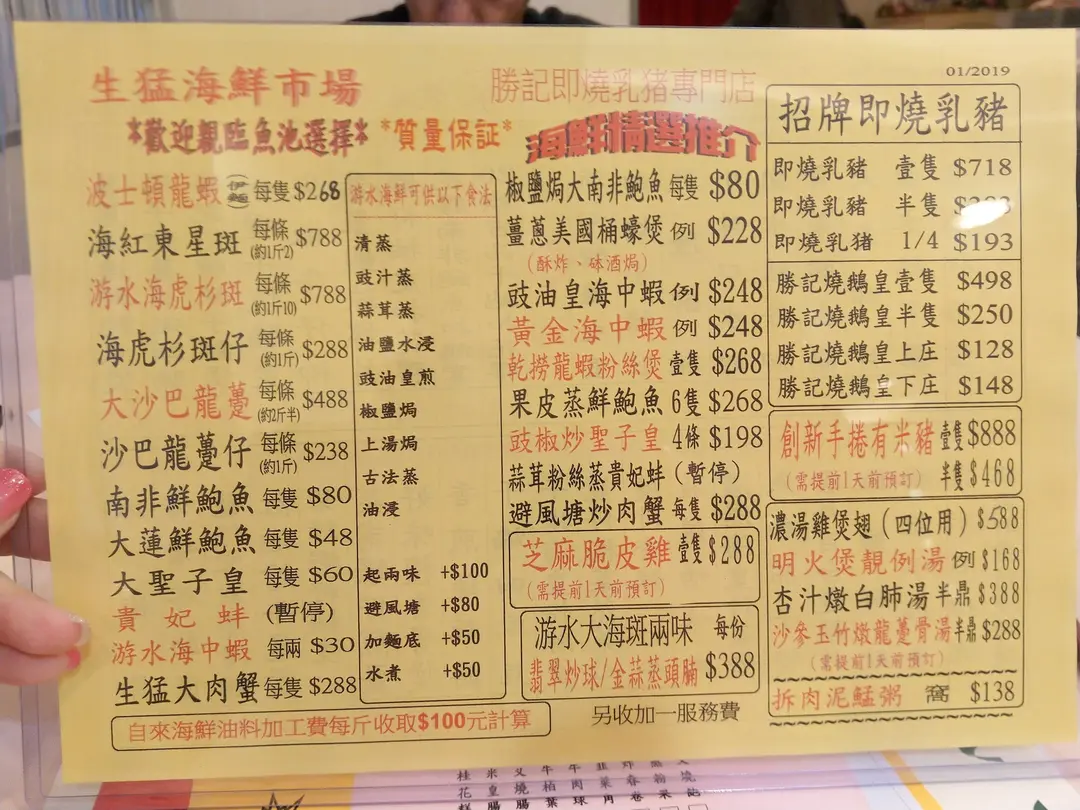 01/2019
生猛海鮮市場
*歡迎親臨魚池選擇* *質量保証*
波士頓龍蝦(伊麵)每隻$268
海紅東星斑 每條(約1斤2) $788
游水海虎杉斑 每條(約1斤10) $788
海虎杉斑仔 每條(約1斤) $288
大沙巴龍躉 每條(約2斤半) $488
沙巴龍躉仔 每條(約1斤) $238
南非鮮鮑魚 每隻 $80
大蓮鮮鮑魚 每隻 $48
大聖子皇 每隻 $60
貴妃蚌 (暫停)
游水海中蝦 每兩 $30
生猛大肉蟹 每隻 $288
游水海鮮可供以下食法
清蒸
豉汁蒸
蒜茸蒸
油鹽水浸
豉油皇煎
椒鹽焗
上湯焗
古法蒸
油浸
起兩味 +$100
避風塘 +$80
加麵底 +$50
水煮 +$50
自來海鮮油料加工費每斤收取$100元計算
勝記即燒乳猪專門店
海鮮精選推介
椒鹽焗大南非鮑魚 每隻 $80
薑蔥美國桶蠔煲 例 $228
(酥炸、砵酒焗)
豉油皇海中蝦 例 $248
黃金海中蝦 例 $248
乾撈龍蝦粉絲煲 壹隻 $268
果皮蒸鮮鮑魚 6隻 $268
豉椒炒聖子皇 4條 $198
蒜茸粉絲蒸貴妃蚌 (暫停)
避風塘炒肉蟹 每隻 $288
芝麻脆皮雞 壹隻 $288
(需提前1天前預訂)
游水大海斑兩味 每份
翡翠炒球/金蒜蒸頭腩 $388
另收加一服務費
招牌即燒乳豬
即燒乳豬 壹隻 $718
即燒乳豬 半隻
即燒乳猪 1/4 $193
勝記燒鵝皇壹隻 $498
勝記燒鵝皇半隻 $250
勝記燒鵝皇上庄 $128
勝記燒鵝皇下庄 $148
創新手捲有米豬 壹隻 $888
(需提前1天前預訂) 半隻 $468
濃湯雞煲翅(四位用) $588
明火煲靚例湯 例 $168
杏汁燉白肺湯 半鼎 $388
沙參玉竹燉龍躉骨湯 半鼎 $288
(需提前1天前預訂)
拆肉泥鯭粥 窩 $138